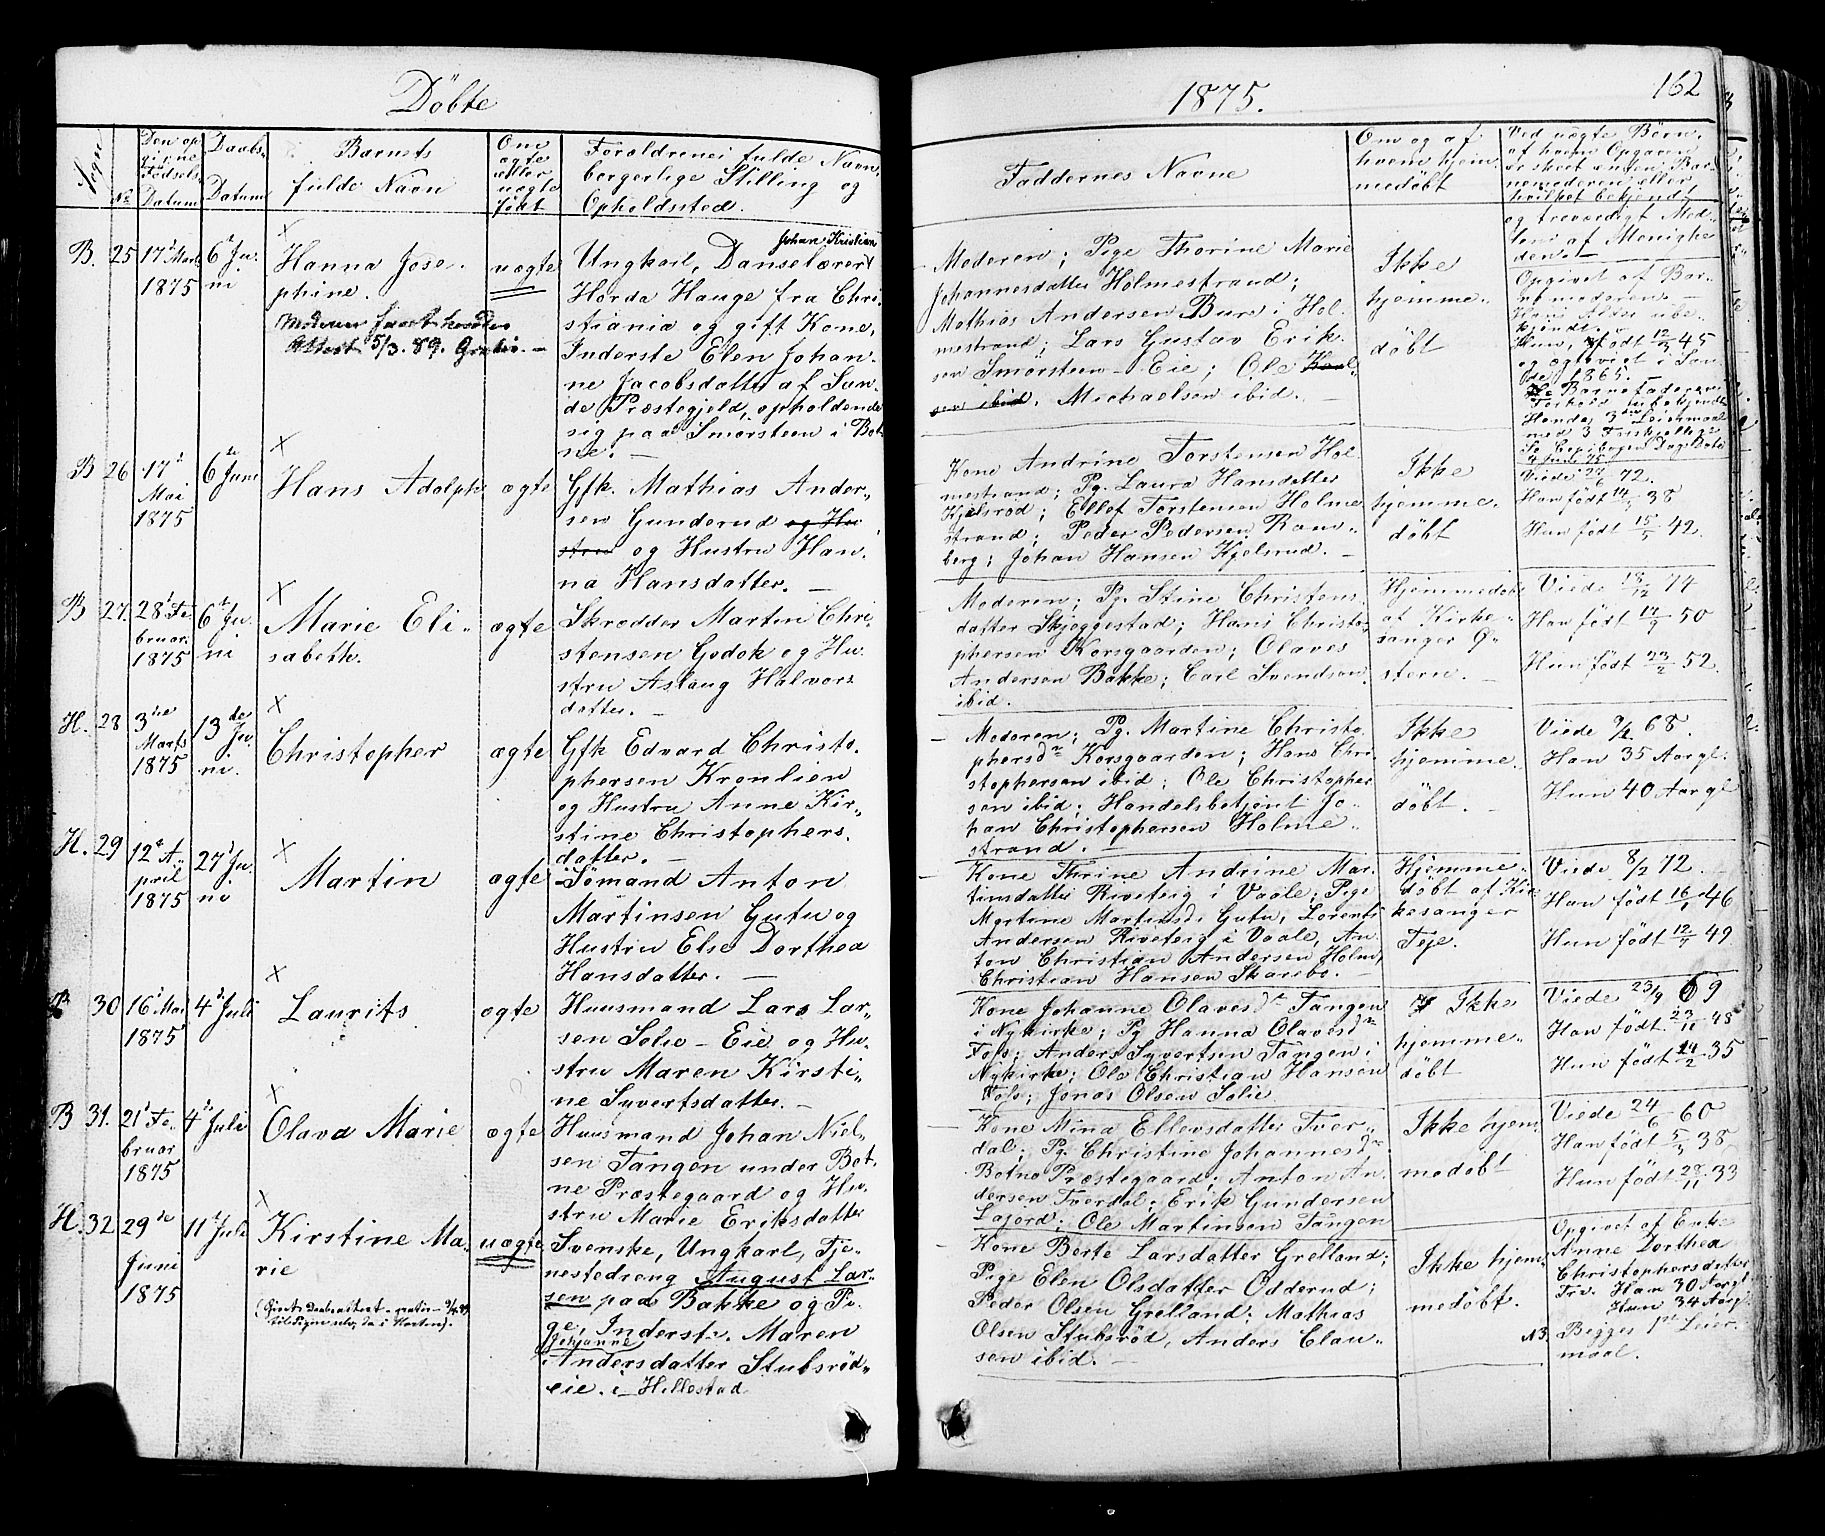 Döbte
1875.
162
Sogn
No
Den op
givne
Födsels-
Datum
Daabs-
Datum
Barnets
fulde Navn
Om
ægte
eller
uægte
födt
Forældrenes fulde Navn,
borgerlige Stilling og
Opholdssted.
Faddernes Navne
Om og af
hvem hjem-
medöbt
Ved uægte Börn,
af hvem Opgaven
er skeet enten Bar-
nemoderen eller
hvilket bekjendt
og troværdigt Med-
lem af Menighe
den.
B. 25
17d Marts
1875
6te Ju-
ni
Hanna Jose-
phine.
Attest 5/3. 89. Gratis. —
uægte
Johan Kristian
Ungkarl, Danselærer
Horda Hauge fra Chri-
stiania og gift Kone,
Inderste Elen Johan-
ne Jacobsdatter af San-
de Præstegjeld, opholdende
sig paa Smörsteen i Bot-
ne. —
Moderen; Pige Thorine Marie
Johannesdatter Holmestrand;
Mathias Andersen Bure i Hol-
mestrand; Lars Gustav Erik-
sen Smörsteen-Eie; Ole
sen ibid. Michaelsen ibid. —
Ikke
hjemme-
döbt
Opgivet af Bar-
nemoderen. —
Hans Alder ube-
kjendt. —
Hun, födt 12/3 45
og ægteviet i San-
de 1865. —
Barnefaderens
Hendes 3die Leiermaal
med 3
B 26
17d
Mai
1875
6te Juni
Hans Adolph
ægte
Gfk. Mathias Ander-
sen Gunderud og Hu
stru og Hustru Han-
na Hansdatter. —
Kone Andrine Torstensen Hol-
mestrand; Pg. Laura Hansdatter
Kjelsrod; Ellef Torstensen Holme
strand; Peder Pedersen Ram-
berg; Johan Hansen Kjelsrud. —
Ikke
hjemme-
döbt
Viede 27/6 72.
Han födt 14/1 38
Hun födt 15/5 42.
B 27.
28d Fe
bruar
1875
6te Ju-
ni
Marie Eli-
sabeth.
ægte
Skrædder Martin Chri-
stensen Godok og Hu-
stru Aslaug Halvors
datter. —
Moderen; Pg. Stine Christens-
datter Skjeggestad; Hans Christo-
phersen Korsgaarden; Olaves
Andersen Bakke; Carl Svendsen
ibid.
Hjemmedöbt
af Kirke-
sanger Ø-
stern. —
Viede 18/12 74
Han födt 14/9 50
Hun födt 23/2 52.
H. 28
3die
Marts
1875
13de
Ju-
ni.
Christopher
ægte
Gfk Edvard Christo-
phersen Kronlien
og Hustru Anne Kir-
stine Christophers-
datter. —
Moderen; Pg. Martine Christo-
phersdr Korsgaarden; Hans Chri-
stophersen ibid; Ole Christopher
sen ibid; Handelsbetjent Jo-
han Christophersen Holme-
strand. —
Ikke
hjemme-
döbt. —
Viede 9/2 68.
Han 35 Aar gl.
Hun 40 Aar gl
H. 29
12te A-
pril
1875
27d Ju-
ni
Martin
ægte
Sömand Anton
Martinsen Gutu og
Hustru Else Dorthea
Hansdatter. —
Kone Thrine Andrine Mar-
tinsdatter Riveteig i Vaale; Pige
Martine Martinsd. Gutu, Lorents
Andersen Riveteig i Vaale, An-
ton Christian Andersen Holm,
Christian Hansen Skarsbo. —
Hjemme-
döbt af Kir-
kesanger
Teje.
Viede 8/2 72.
Han födt 16/1 46
Hun födt 12/7 49
B 30
16d Mai
1875
4d Juli
Laurits
ægte
Huusmand Lars Lar-
sen Solie-Eie og Hu-
stru Maren Kirsti-
ne Syvertsdatter. —
Kone Johanne Olavesdr Tangen
i Nykirke; Pg Hanna Olavesdr
Fos; Anders Syvertsen Tangen i
Nykirke; Ole Christian Hansen
Fos; Jonas Olsen Solie.
Ikke
hjemme-
döbt
Viede 23/9 69
Han födt 23/11 48
Hun födt 24/2 35
B 31.
21d Fe-
bruar
1875
4d Juli
Olava Marie
ægte
Huusmand Johan Niel-
sen Tangen under Bot-
ne Præstegaard og Hu-
stru Marie Eriksdatter
Kone Mina Ellevsdatter Tver-
dal; Pg. Christine Johannesdr
Botne Præstegaard; Anton An-
dersen Tverdal; Erik Gundersen
Lajord; Ole Martinsen Tangen
Ikke hjem-
medöbt
Viede 24/6 60
Han födt 5/3 38
Hun födt 28/11 33
H. 32
29de
Juni
1875
11te Juli
Kirstine Ma-
rie
uægte
Svenske, Ungkarl, Tje-
nestedreng August Lar-
sen paa Bakke og Pi-
ge, Inderste, Maren
Johanne
Andersdatter Stubsröd-
eie. i Hillestad
Kone Berte Larsdatter Grelland;
Pige Elen Olsdatter Odderud;
Peder Olsen Grelland; Mathias
Olsen Stubsröd, Anders Clau-
sen ibid. —
Ikke hjem-
medöbt.
Opgivet af Enke
Anne Dorthea
Christophersdatter
Trv. Han 30 Aar gl.
Hun 34 Aar gl.
NB. Begges 1ste Leier-
maal.